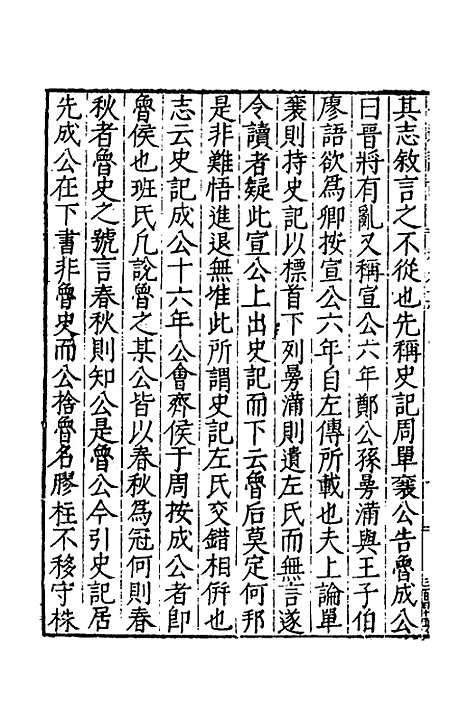 其志敘言之不從也先稱史記周單襄公告魯成公
曰晉將有亂又稱宣公六年鄭公孫曼滿與王子伯
廖語欲爲卿按宣公六年自左傳所載也夫上論單
襄則持史記以標首下列曼滿則遺左氏而無言遂
令讀者疑此宣公上出史記而下云魯后莫定何邦
是非難悟進退無准此所謂史記左氏交錯相倂也
志云史記成公十六年公會齊侯于周按成公者卽
魯侯也班氏凢說魯之某公皆以春秋爲冠何則春
秋者魯史之號言春秋則知公是魯公今引史記居
先成公在下書非魯史而公捨魯名膠柱不移守株